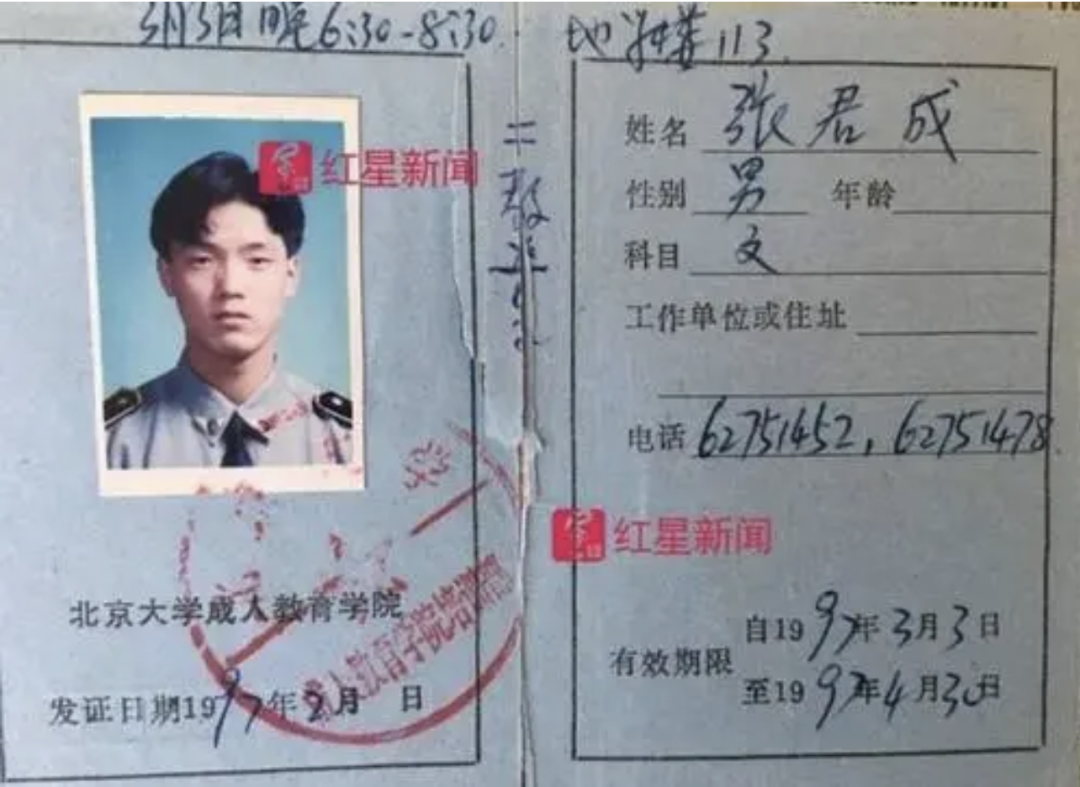 3月3日晚6:30-8:30
地学楼113.
红星新闻
北京大学成人教育学院
人教育学院培训部
发证日期1997年2月 日
二教
姓名 张君成
性别 男 年龄
科目 文
工作单位或住址
电话 62751452, 62751478
红星新闻
有效期限
自1997年3月3日
至1997年4月30日